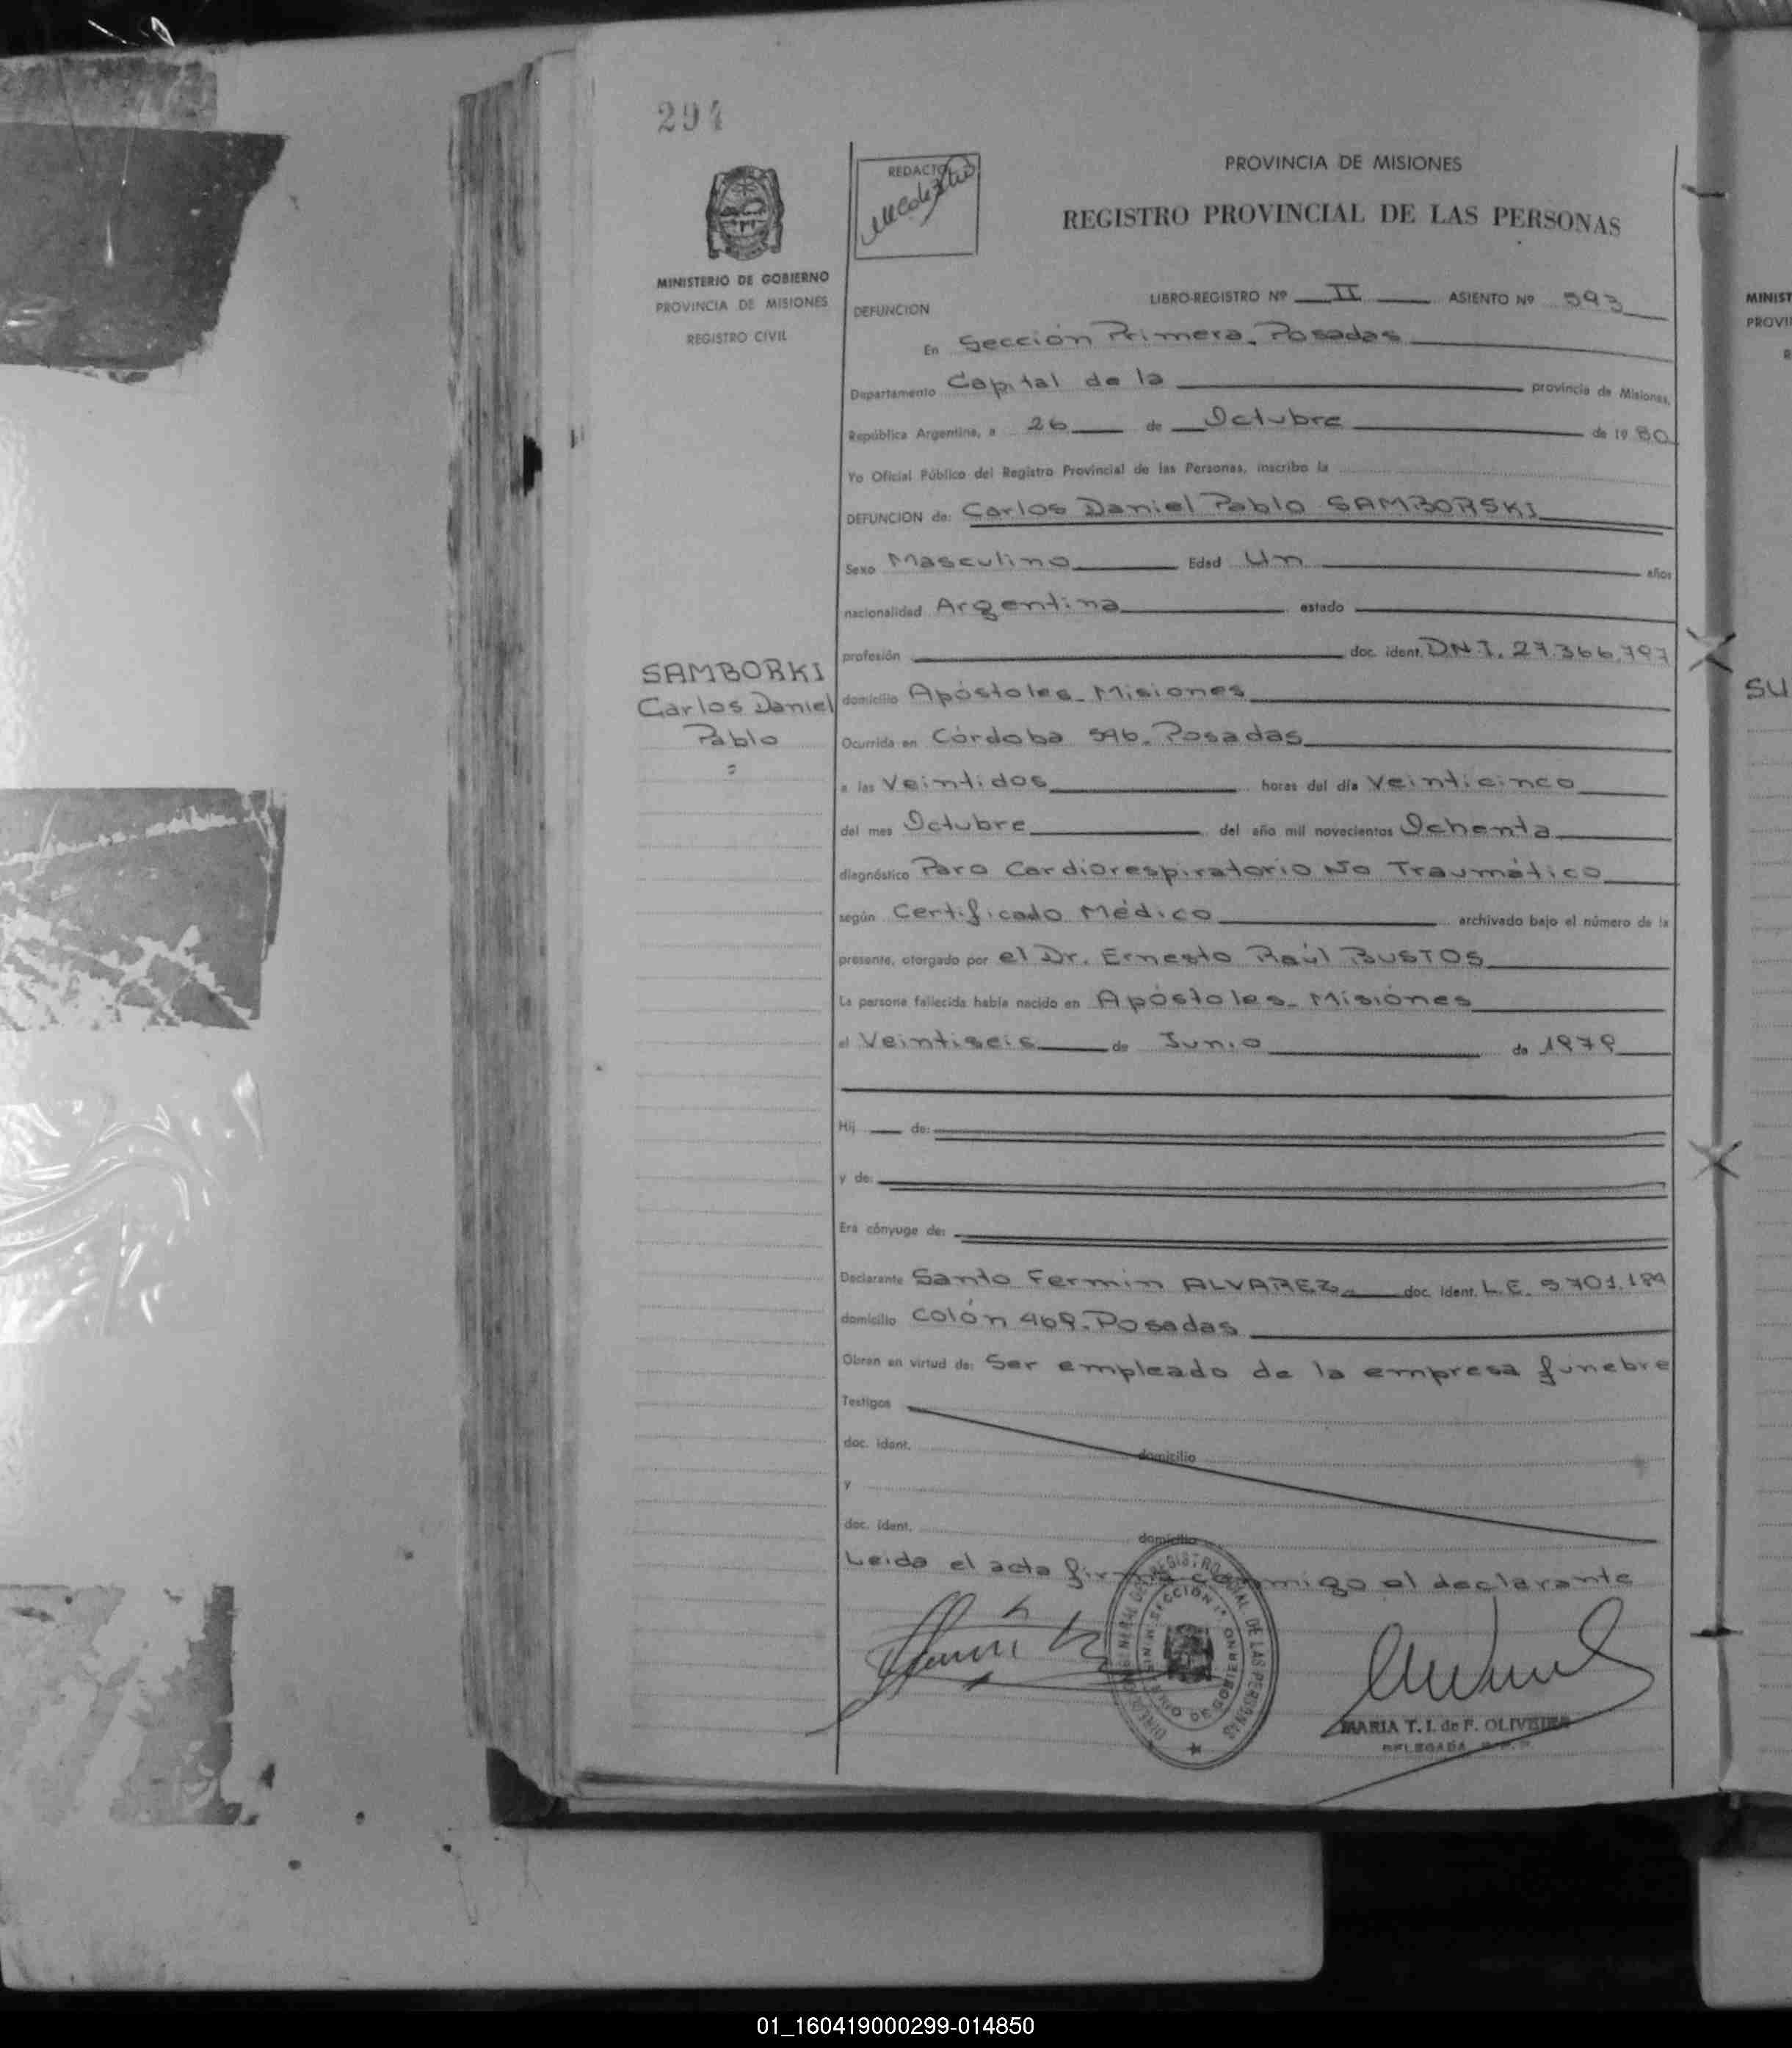 294
PROVINCIA DE MISIONES
REGISTRO PROVINCIAL DE LAS PERSONAS
MINISTERIO DE GOBIERNO
PROVINCIA DE MISIONES
REGISTRO CIVIL
DEFUNCION
LIBRO-REGISTRO Nº II ASIENTO Nº 593
En Sección Primera. Posadas
Departamento Capital de la provincia de Misiones,
República Argentina, a 26 de Octubre de 1980
Yo Oficial Público del Registro Provincial de las Personas, inscribo la
DEFUNCION de: Carlos Daniel Pablo SAMBORSKI
Sexo Masculino Edad Un años
nacionalidad Argentina estado
profesión doc. ident. DNI. 27.366.797
SAMBORKI
Carlos Daniel
Pablo
domicilio Apóstoles - Misiones
Ocurrida en Córdoba 596. Posadas
a las Veintidos horas del día Veinticinco
del mes Octubre del año mil novecientos Ochenta
diagnóstico Paro Cardiorespiratorio No Traumático
según Certificado Médico archivado bajo el número de la
presente, otorgado por el Dr. Ernesto Raúl BUSTOS
La persona fallecida había nacido en Apóstoles - Misiónes
el Veintiseis de Junio de 1979
Hij de:
y de:
Era cónyuge de:
Declarante Santo Fermin ALVAREZ. doc. ident. L.E. 5701.189
domicilio Colón 469. Posadas
Obran en virtud de: Ser empleado de la empresa fúnebre
Testigos
doc. ident. domicilio
y
doc. ident. domicilio
Leida el acta firma conmigo el declarante
MARIA T. I. de F. OLIVEIRA
DELEGADA
MINIST
PROVI
R
SU
01_160419000299-014850